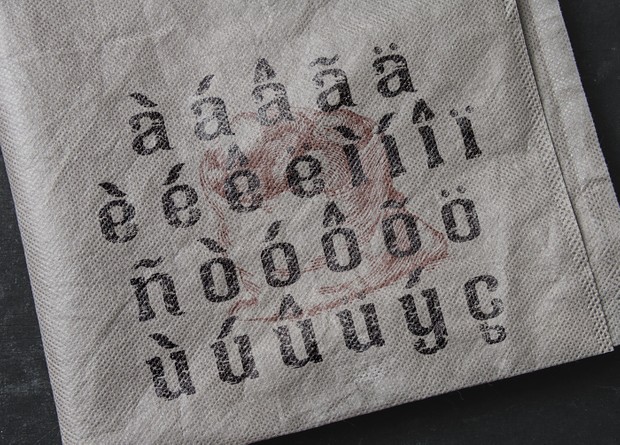 à á â ã ä
è é ê e ì í î ï
ñ ò ó ô ô ö
ù ú û u ý ç